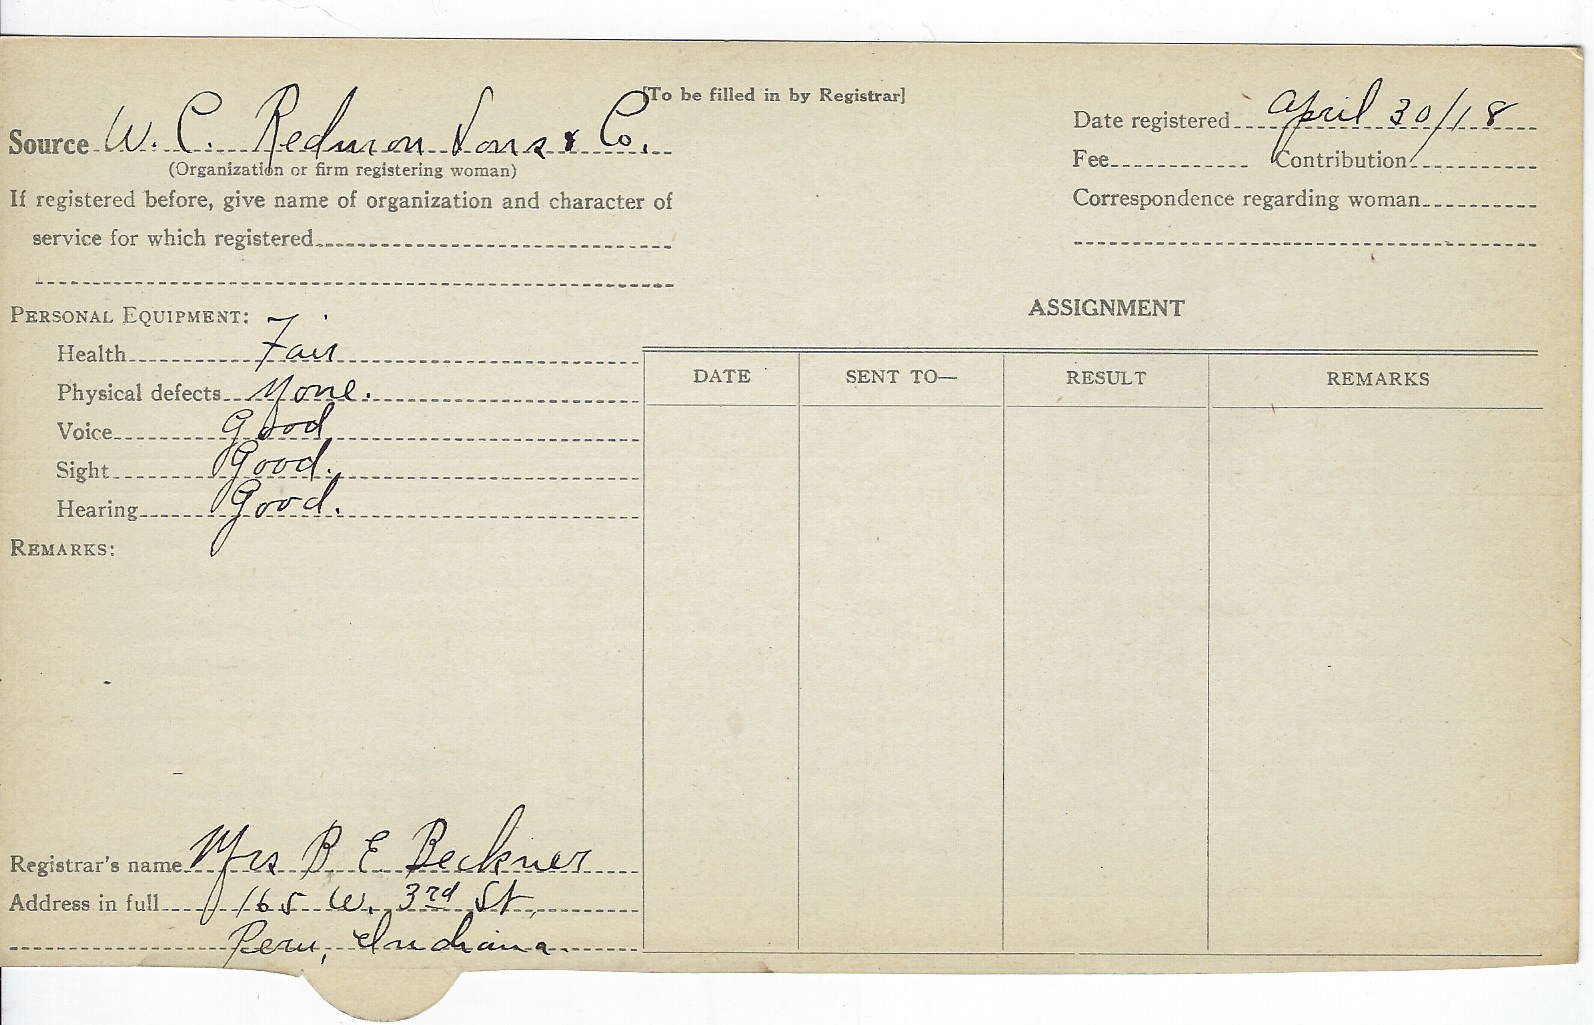 [To be filled in by Registrar]
Source W. C. Redmon Sons & Co.
(Organization or firm registering woman)
If registered before, give name of organization and character of
service for which registered
Date registered April 30/18
Fee Contribution
Correspondence regarding woman
PERSONAL EQUIPMENT:
Health Fair
Physical defects None.
Voice Good
Sight Good.
Hearing Good.
REMARKS:
ASSIGNMENT
DATE SENT TO— RESULT REMARKS
Registrar's name Mrs B. E. Beckner
Address in full 165 W. 3rd St,
Peru, Indiana.